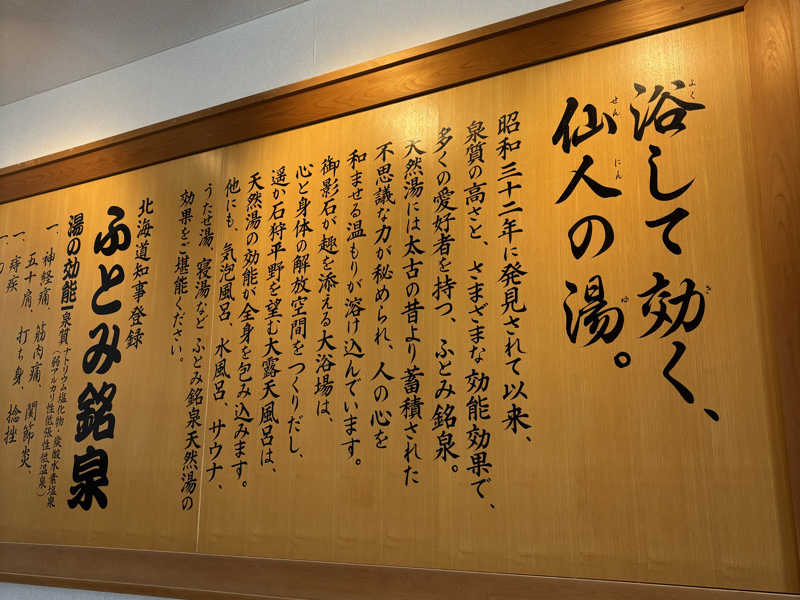 浴して効く、
仙人の湯。
昭和三十二年に発見されて以来、
泉質の高さと、さまざまな効能効果で、
多くの愛好者を持つ、ふとみ銘泉。
天然湯には太古の昔より蓄積された
不思議な力が秘められ、人の心を
和ませる温もりが溶け込んでいます。
御影石が趣を添える大浴場は、
心と身体の解放空間をつくりだし、
遥か石狩平野を望む大露天風呂は、
天然湯の効能が全身を包み込みます。
他にも、気泡風呂、水風呂、サウナ、
うたせ湯、寝湯など ふとみ銘泉天然湯の
効果をご堪能ください。
北海道知事登録
ふとみ銘泉
湯の効能 泉質 ナトリウム塩化物・炭酸水素塩泉
(弱アルカリ性低張性低温泉)
一、神経痛、筋肉痛、関節炎、
五十肩、打ち身、捻挫
一、痔疾